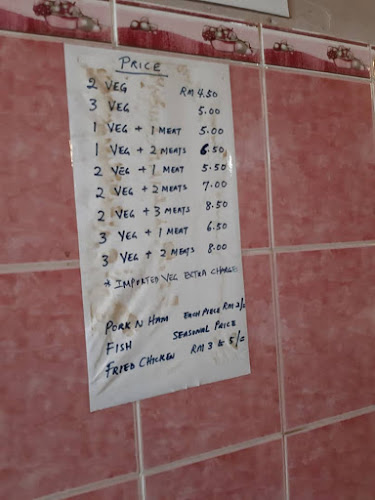 PRICE
2 VEG RM 4.50
3 VEG 5.00
1 VEG + 1 MEAT 5.00
1 VEG + 2 MEATS 6.50
2 VEG + 1 MEAT 5.50
2 VEG + 2 MEATS 7.00
2 VEG + 3 MEATS 8.50
3 VEG + 1 MEAT 6.50
3 VEG + 2 MEATS 8.00
* IMPORTED VEG EXTRA CHARGES
PORK N HAM EACH PIECE RM 2/=
FISH SEASONAL PRICE
FRIED CHICKEN RM 3 to 5/=